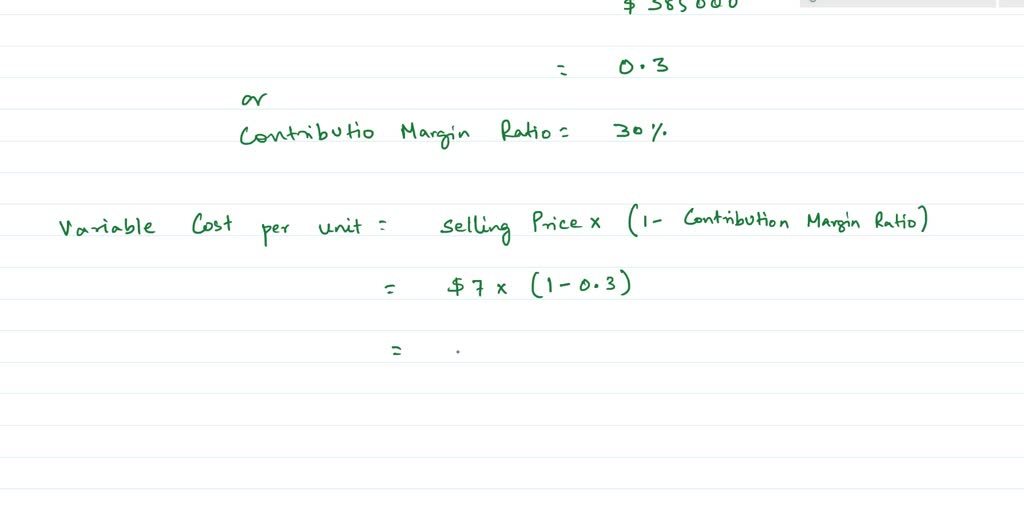 $ 385000
= 0.3
or
Contributio Margin Ratio = 30%.
Variable Cost per unit = Selling Price x (1- Contribution Margin Ratio)
= $7 x (1-0.3)
=